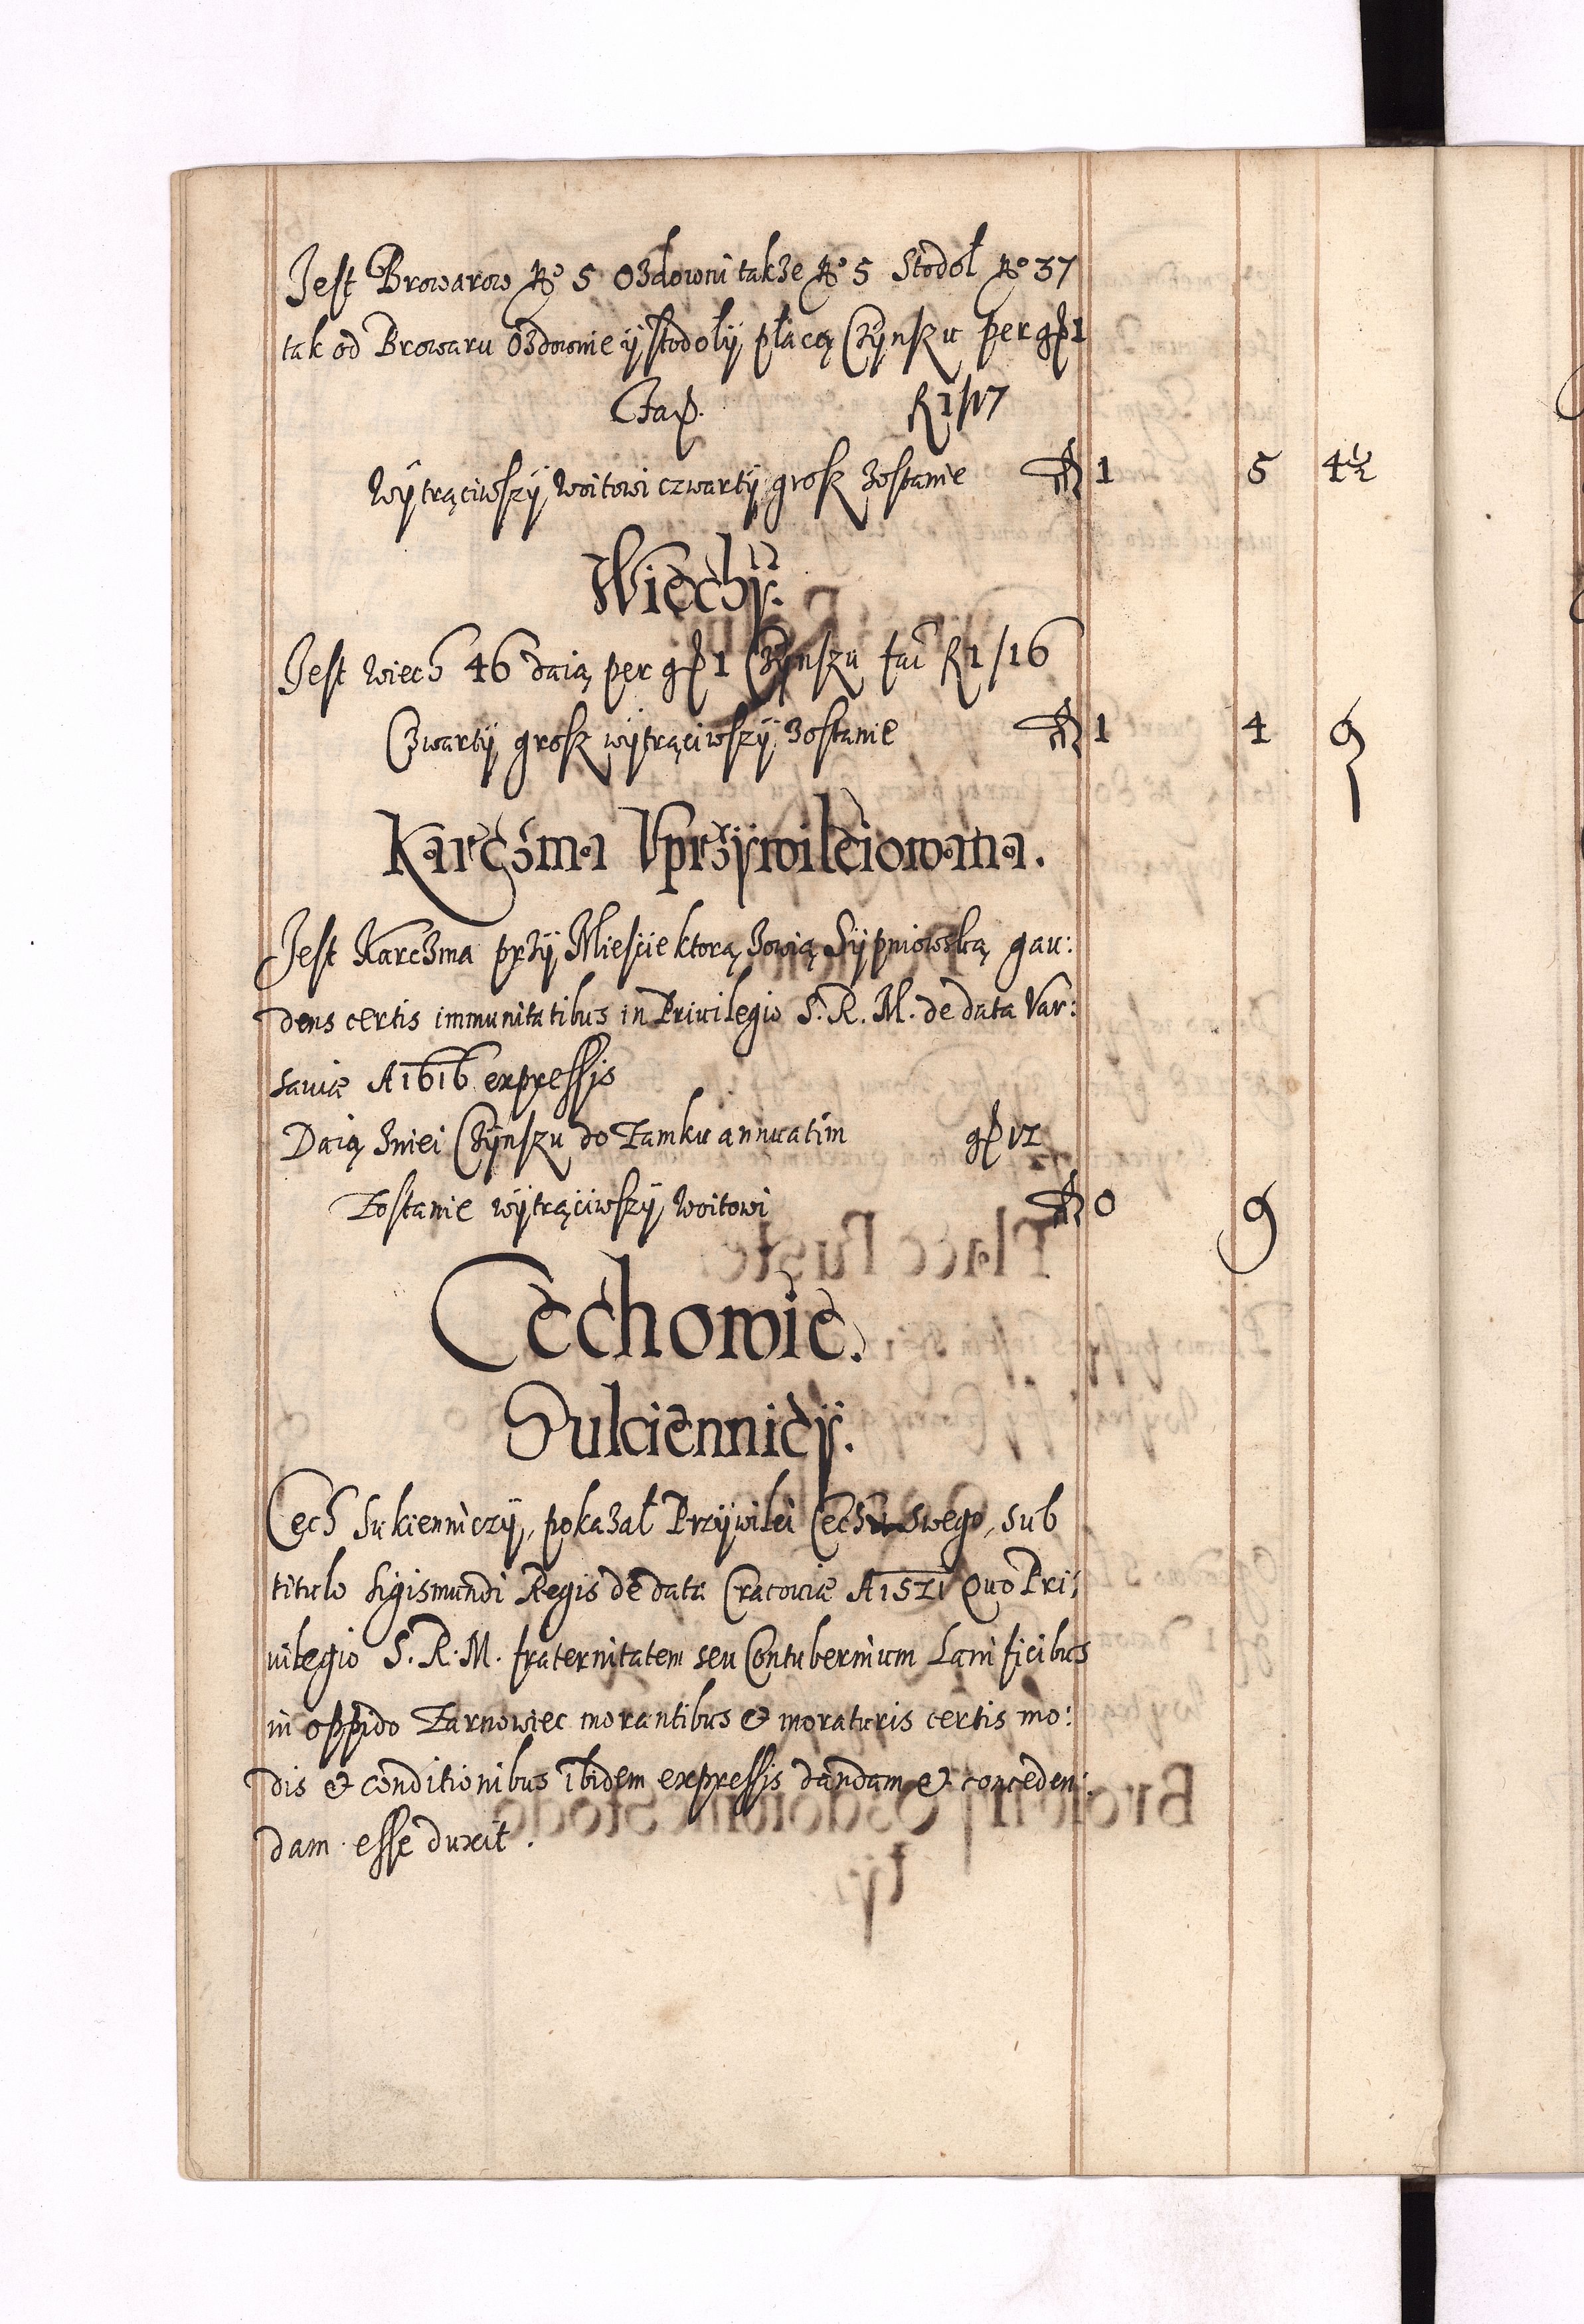 Jest Browarow No 5 Ozdowni takze No 5 Stodół No 37
tak od Browaru Ozdownie ÿ stodołÿ płacą Czÿnszu per gr 1
Czÿnsz wÿtrąciwszÿ woitowi czwartÿ grosz zostanie fl 1 5 4½
Wiechÿ.
Jest wiech 46 daią per gr 1 Czÿnszu faci fl 1/16
Czwartÿ grosz wÿtrąciwszÿ zostanie fl 1 4 9
Karczma Vprzÿwileiowana.
Jest Karczma przÿ Mieście ktorą zowią Sÿpniowską gau:
dens certis immunitatibus in Priuilegio S. R. M. de data Var:
sauiæ A 1616 expressis
Daią zniei Czÿnszu do Zamku annuatim gr 12
Zostanie wÿtrąciwszÿ woitowi fl 0 9
Cechowie.
Sukiennicÿ.
Cech Sukienniczÿ, pokazał Przÿwilei Cechu swego, sub
titulo Sigismundi Regis de data Cracouiæ A 1521 Quo Pri:
uilegio S. R. M. fraternitatem seu Contubernium Lanificibus
in oppido Zarnowiec morantibus & moraturis certis mo:
dis & conditionibus ibidem expressis dandam & conceden:
dam esse duxit.